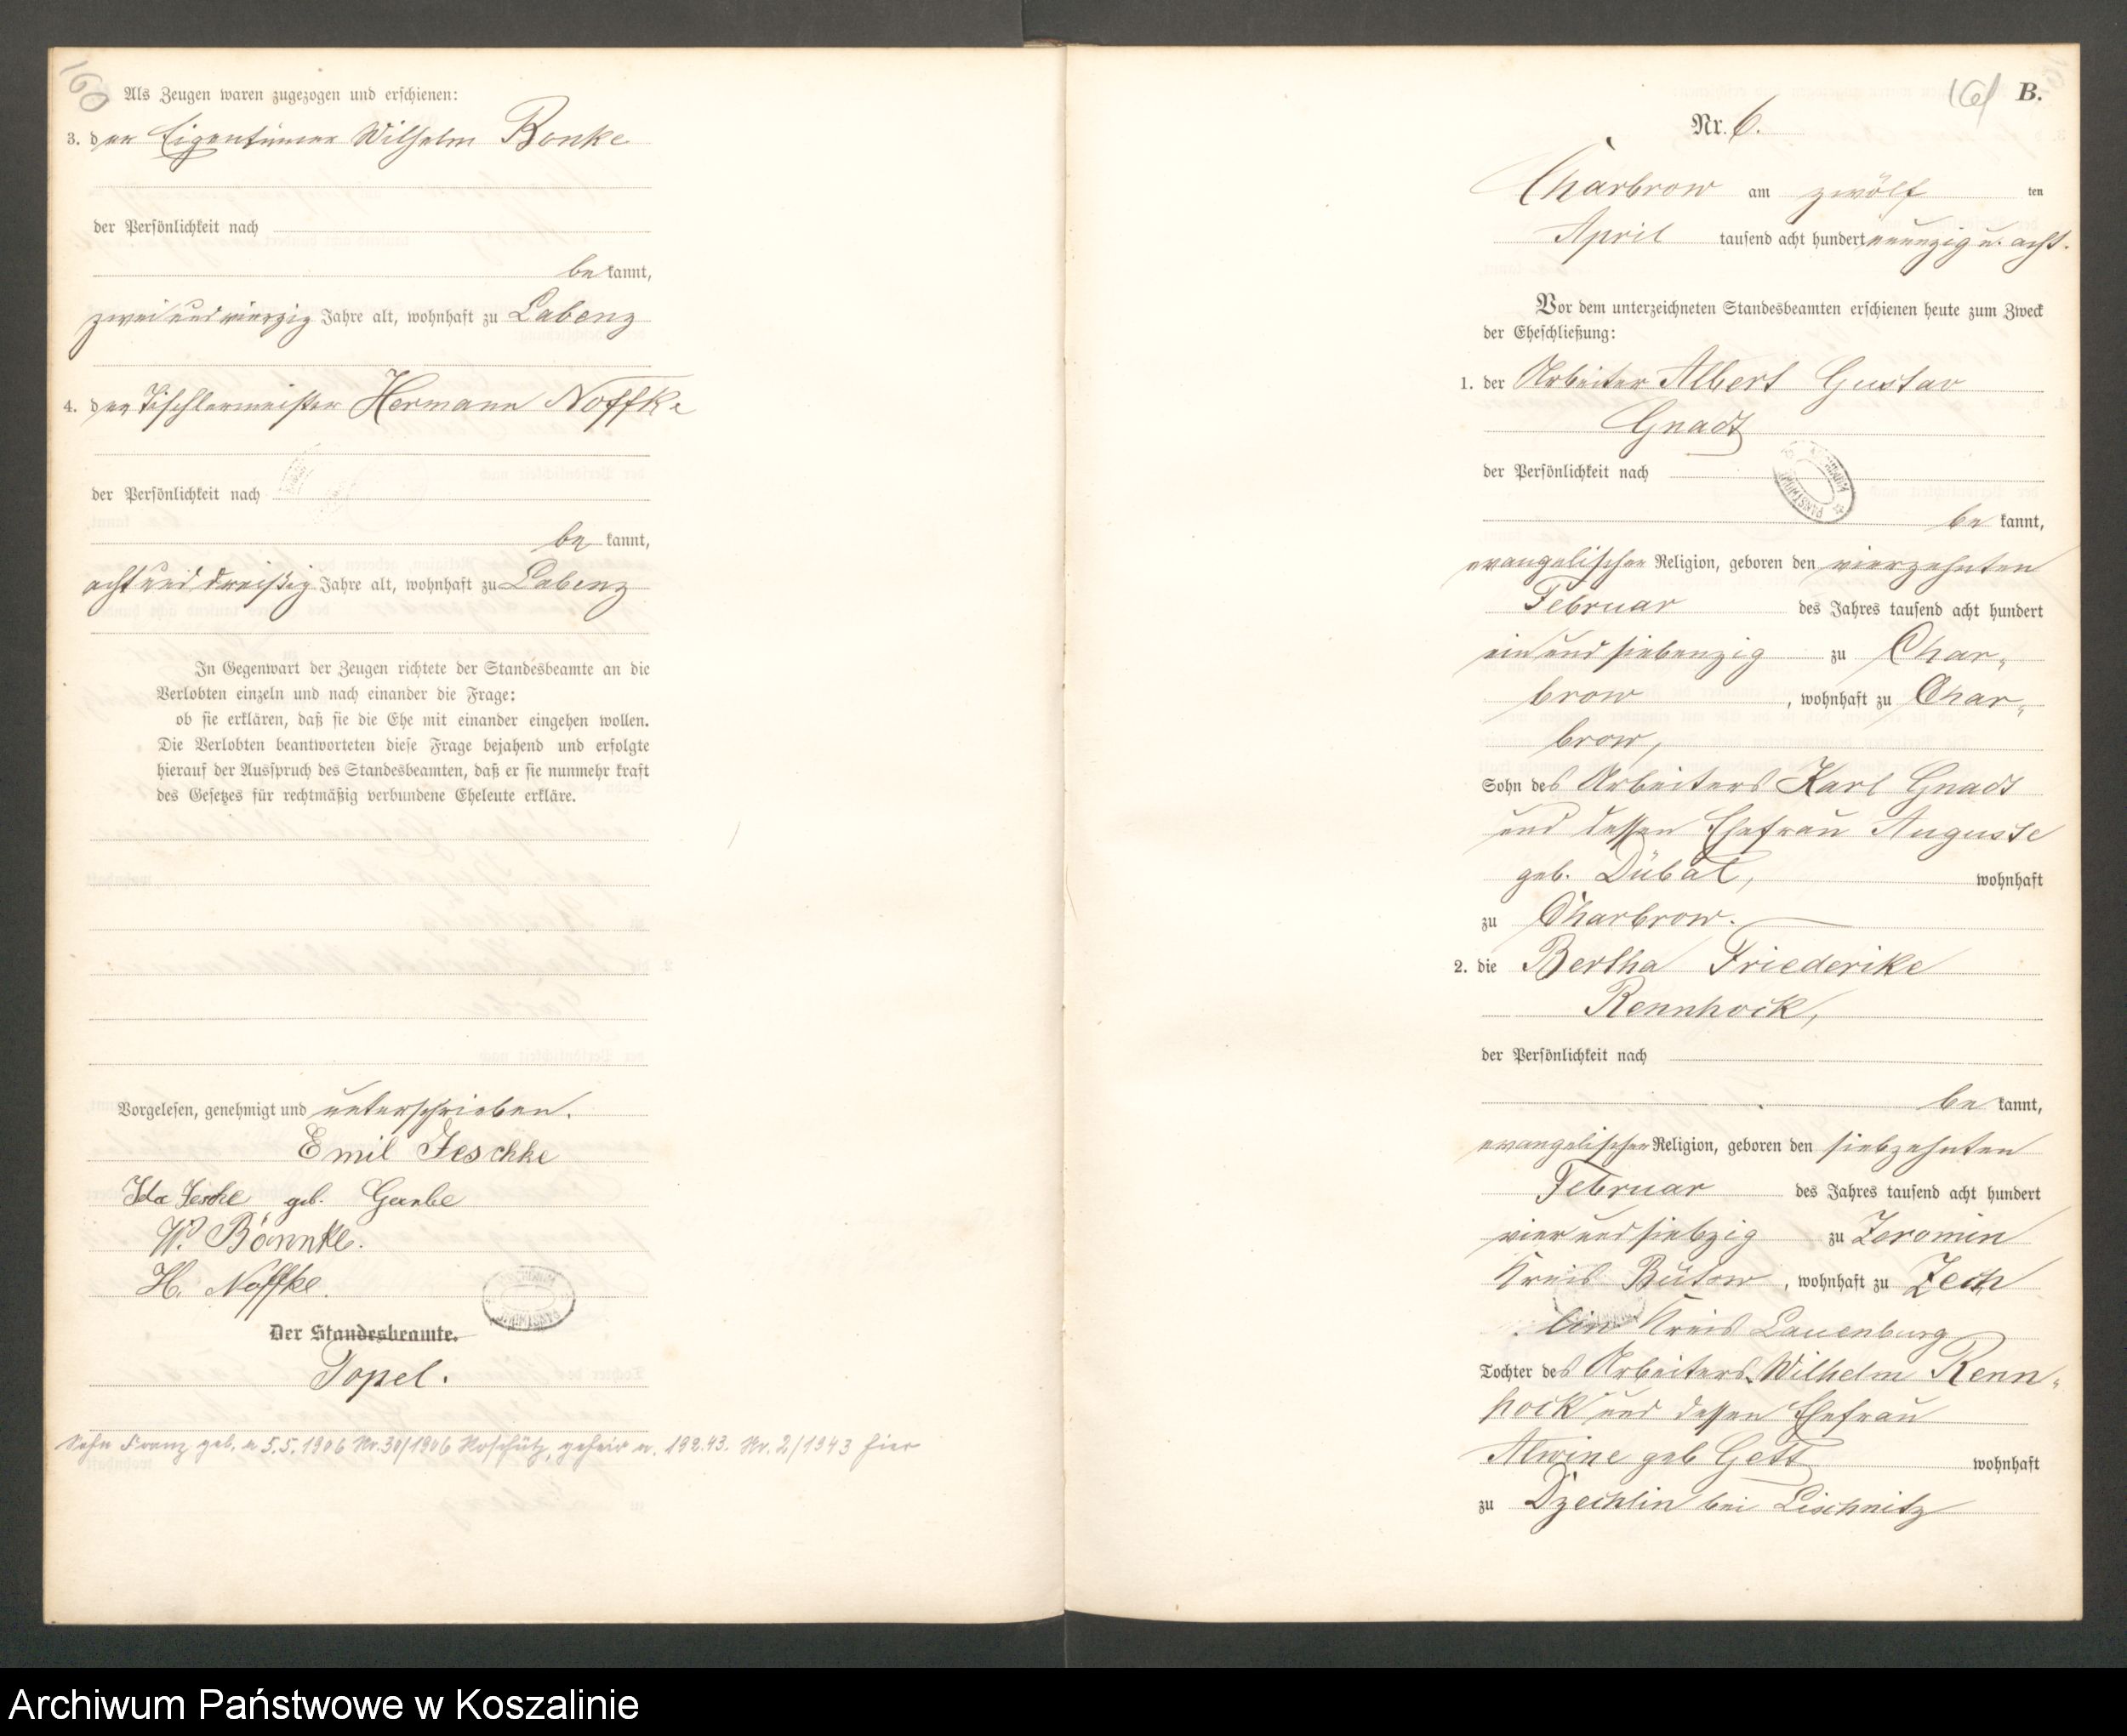 160
Als Zeugen waren zugezogen und erschienen:
3. der Eigentümer Wilhelm Bonke
der Persönlichkeit nach
be kannt,
zwei und vierzig Jahre alt, wohnhaft zu Labenz
4. der Tischlermeister Hermann Noffke
der Persönlichkeit nach
be kannt,
acht und dreißig Jahre alt, wohnhaft zu Labenz
In Gegenwart der Zeugen richtete der Standesbeamte an die
Verlobten einzeln und nach einander die Frage:
ob sie erklären, daß sie die Ehe mit einander eingehen wollen.
Die Verlobten beantworteten diese Frage bejahend und erfolgte
hierauf der Ausspruch des Standesbeamten, daß er sie nunmehr kraft
des Gesetzes für rechtmäßig verbundene Eheleute erkläre.
Vorgelesen, genehmigt und unterschrieben.
Emil Jeschke
Ida geb.
W. Bönnke.
H. Noffke.
Der Standesbeamte.
Topel.
Sohn Franz geb. a 5.5.1906 Nr. 30/1906 Roschütz, Nr. 2/1943 hier
161
B.
Nr. 6.
Charbrow am zwölf ten
April tausend acht hundert neunzig u. acht.
Vor dem unterzeichneten Standesbeamten erschienen heute zum Zweck
der Eheschließung:
1. der Arbeiter Albert Gustav
Gnadt
der Persönlichkeit nach
be kannt,
evangelischer Religion, geboren den vierzehnten
Februar des Jahres tausend acht hundert
ein und siebenzig zu Char„
brow, wohnhaft zu Char„
brow,
Sohn des Arbeiters Karl Gnadt
und dessen Ehefrau Auguste
geb. Dübal, wohnhaft
zu Charbrow.
2. die Bertha Friederike
Rennhock,
der Persönlichkeit nach
be kannt,
evangelischer Religion, geboren den siebzehnten
Februar des Jahres tausend acht hundert
vier und siebzig zu Zeromin
Kreis Bütow, wohnhaft zu Zech
lin Kreis Lauenburg
Tochter des Arbeiters Wilhelm Renn„
hock und dessen Ehefrau
Alwine geb Gett wohnhaft
zu Dzechlin bei Lischnitz
Archiwum Państwowe w Koszalinie